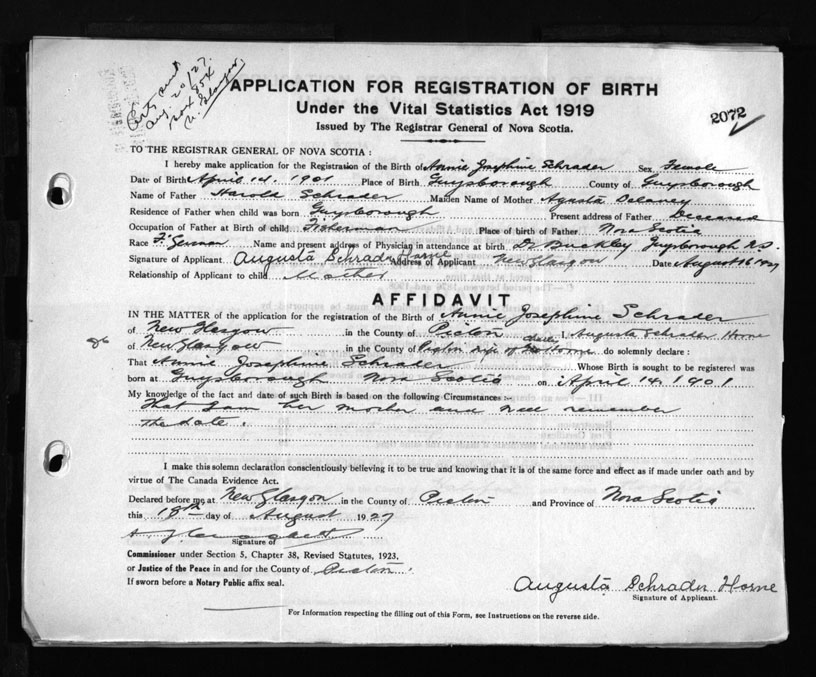 Aug. 20/27.
APPLICATION FOR REGISTRATION OF BIRTH
Under the Vital Statistics Act 1919
Issued by The Registrar General of Nova Scotia.
2072
TO THE REGISTRAR GENERAL OF NOVA SCOTIA :
I hereby make application for the Registration of the Birth of Annie Josephine Schrader Sex Female
Date of Birth April 14. 1901 Place of Birth Guysborough County of Guysborough
Name of Father Harold Schrader Maiden Name of Mother Agusta Delaney
Residence of Father when child was born Guysborough Present address of Father Deceased
Occupation of Father at Birth of child Fisherman Place of birth of Father Nova Scotia
Race F. German Name and present address of Physician in attendance at birth Dr Buckley Guysborough N.S.
Signature of Applicant Augusta Schrader Horne Address of Applicant New Glasgow Date August 16 1927
Relationship of Applicant to child Mother
AFFIDAVIT
IN THE MATTER of the application for the registration of Birth of Annie Josephine Schrader
of New Glasgow in the County of Pictou I, Augusta Schrader Horne
of New Glasgow in the County of Pictou wife of Horne do solemnly declare :
That Annie Josephine Schrader Whose Birth is sought to be registered was
born at Guysborough Nova Scotia on April 14. 1901
My knowledge of the fact and date of such Birth is based on the following Circumstances :-
That I am her mother and well remember
the date.
I make this solemn declaration conscientiously believing it to be true and knowing that it is of the same force and effect as if made under oath and by
virtue of The Canada Evidence Act.
Declared before me at New Glasgow in the County of Pictou and Province of Nova Scotia
this 18th day of August 1927
Signature of
Commissioner under Section 5, Chapter 38, Revised Statutes, 1923,
or Justice of the Peace in and for the County of Pictou.
If sworn before a Notary Public affix seal.
Augusta Schrader Horne
Signature of Applicant.
For Information respecting the filling out of this Form, see Instructions on the reverse side.